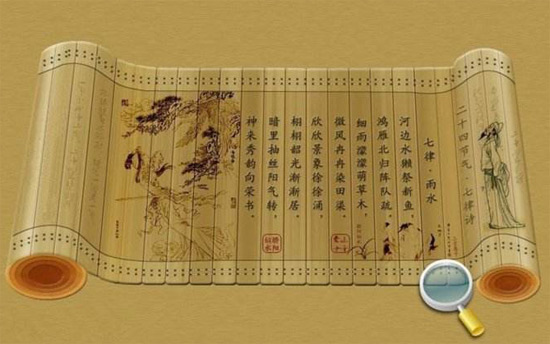 二十四节气·七律诗
七律·雨水
河边水獭祭新鱼，
鸿雁北归阵队疏。
细雨濛濛萌草木，
微风冉冉染田渠。
欣欣景象徐徐涌，
栩栩韶光渐渐居。
暗里抽丝阳气转，
神来秀韵向荣书。